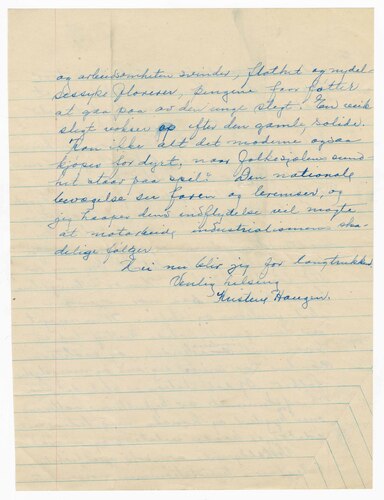 og arbeidsomheten svinder, flothet og nydel-
sessyke florerer, pengene faar føtter
at gaa paa av den unge slegt. En veik
slegt vokser op efter den gamle, solide.
Kan ikke alt det moderne ogsaa
kjøpes for dyrt, naar folkesjælens sund-
het staar paa spil? Den nationale
bevægelse ser faren og bremser, og
jeg haaper dens indflydelse vil magte
at motarbeide industrialismens ska-
delige følger.
Nei nu blir jeg for langtrukken
Venlig hilsing
Haugen.